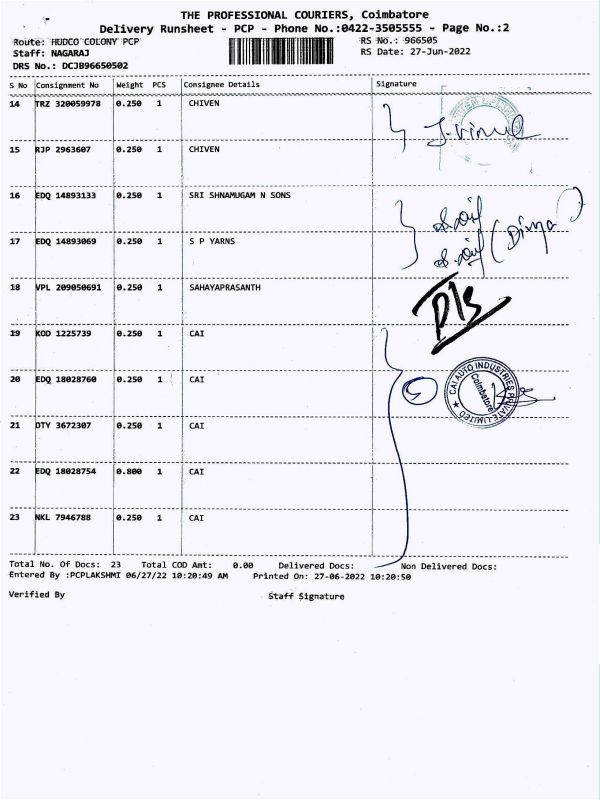 THE PROFESSIONAL COURIERS, Coimbatore
Delivery Runsheet - PCP - Phone No.:0422-3505555 - Page No.:2
Route: HUDCO COLONY PCP RS No.: 966505
Staff: NAGARAJ RS Date: 27-Jun-2022
DRS No.: DCJB96650502
S No Consignment No Weight PCS Consignee Details Signature
14 TRZ 320059978 0.250 1 CHIVEN
15 RJP 2963607 0.250 1 CHIVEN
16 EDQ 14893133 0.250 1 SRI SHNAMUGAM N SONS
17 EDQ 14893069 0.250 1 S P YARNS
(Divya)
18 VPL 209050691 0.250 1 SAHAYAPRASANTH
19 KOD 1225739 0.250 1 CAI
20 EDQ 18028760 0.250 1 CAI
5
CAI AUTO INDUSTRIES PRIVATE LIMITED
Coimbatore
21 DTY 3672307 0.250 1 CAI
22 EDQ 18028754 0.800 1 CAI
23 NKL 7946788 0.250 1 CAI
Total No. Of Docs: 23 Total COD Amt: 0.00 Delivered Docs: Non Delivered Docs:
Entered By :PCPLAKSHMI 06/27/22 10:20:49 AM Printed On: 27-06-2022 10:20:50
Verified By Staff Signature